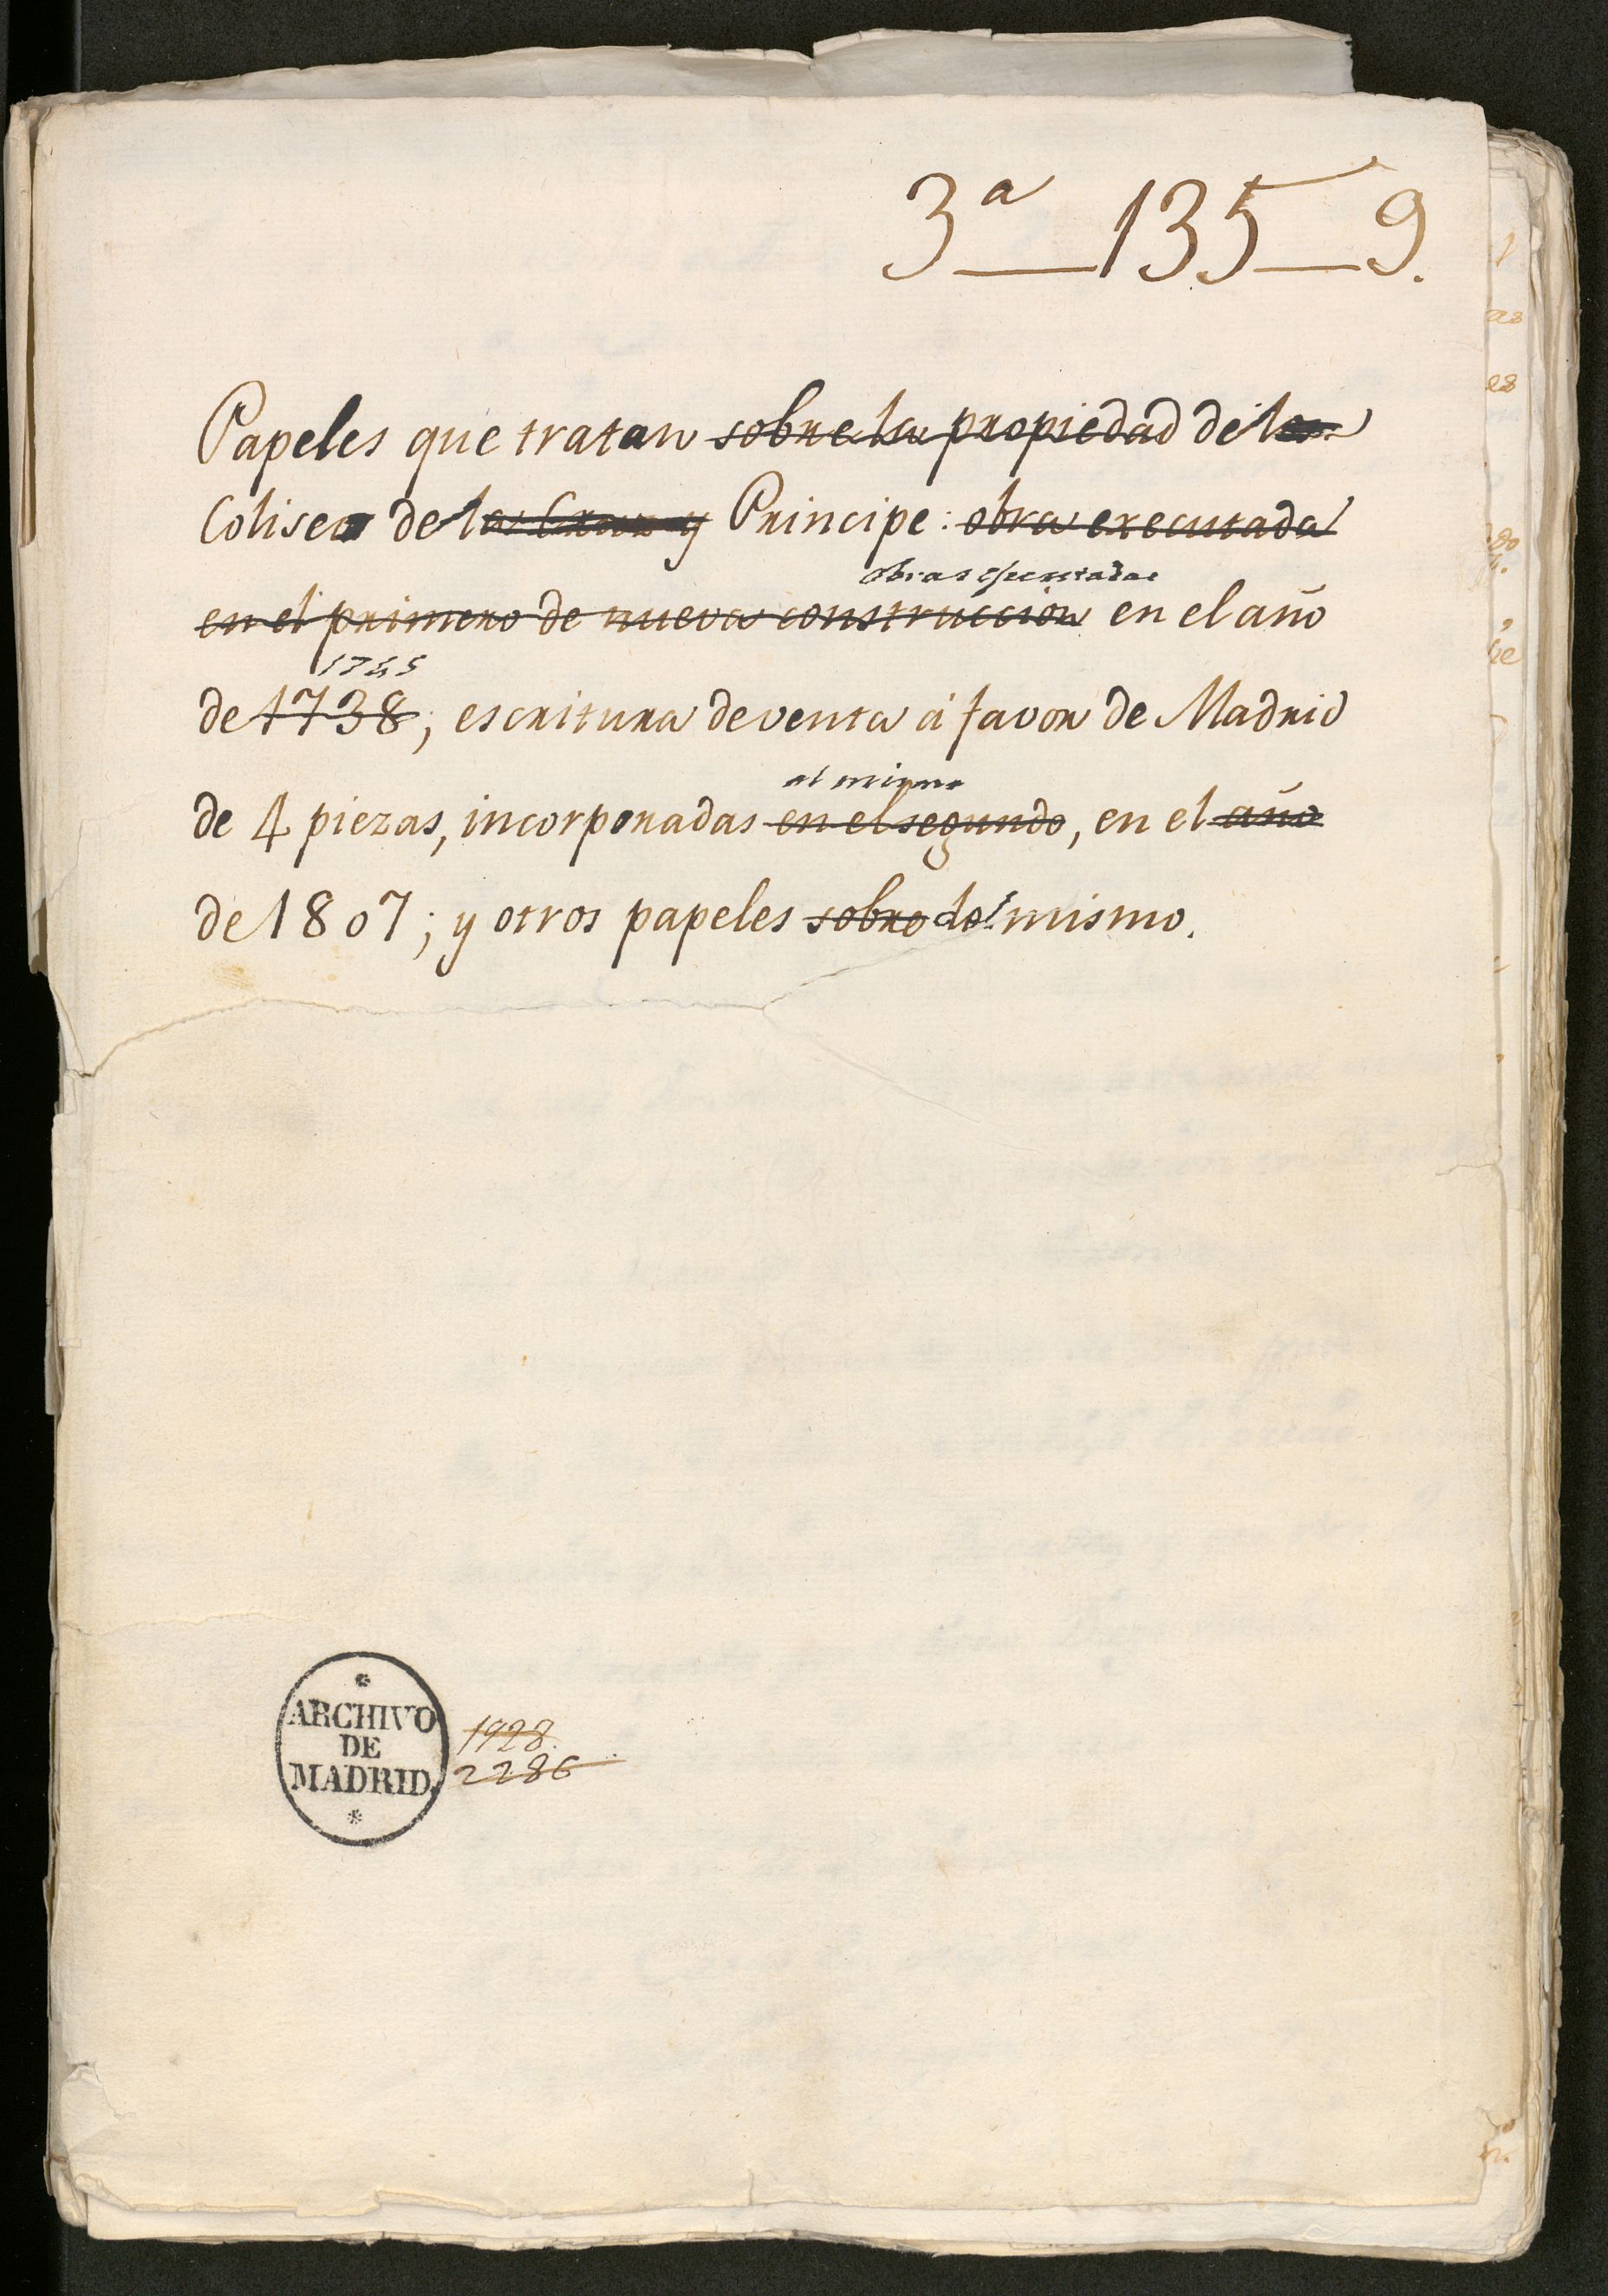 3ª 135 9.
Papeles que tratan sobre la propiedad de los
Coliseo de la Cruz y Principe: obra executada
obras ejecutadas
en el primero de nueva construccion en el año
1745
de 1738; escritura de venta á favor de Madrid
al mismo
de 4 piezas, incorporadas en el segundo, en el año
de 1807; y otros papeles sobre del mismo.
ARCHIVO
DE
MADRID.
1928.
2286